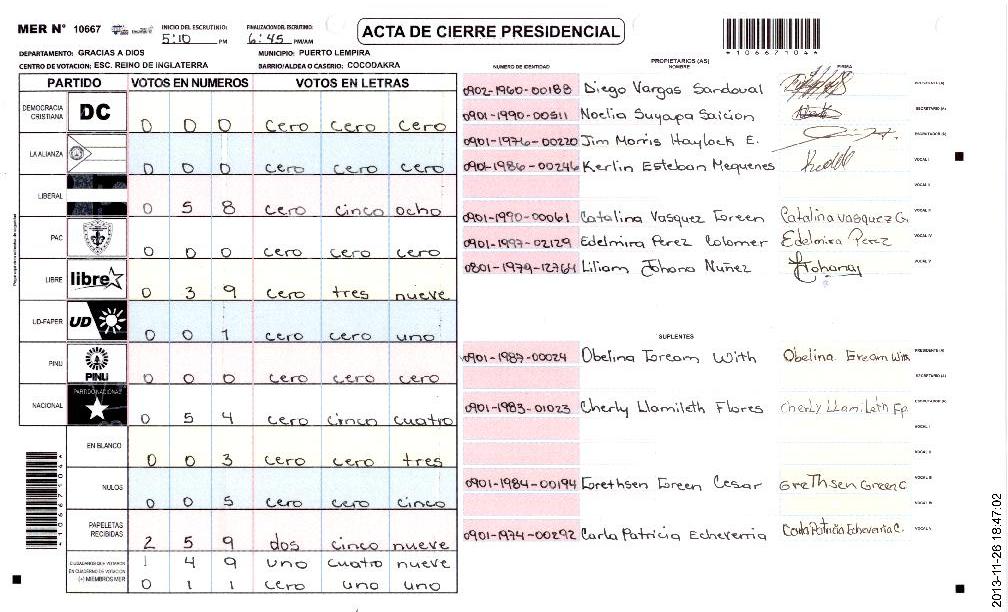 MER N° 10667
INICIO DEL ESCRUTINIO: 5:10 PM
FINALIZACION DEL ESCRUTINIO: 6:45 PM/AM
ACTA DE CIERRE PRESIDENCIAL
*10667104*
DEPARTAMENTO: GRACIAS A DIOS
MUNICIPIO: PUERTO LEMPIRA
CENTRO DE VOTACION: ESC. REINO DE INGLATERRA
BARRIO/ALDEA O CASERIO: COCODAKRA
PARTIDO VOTOS EN NUMEROS VOTOS EN LETRAS
DEMOCRACIA CRISTIANA DC 0 0 0 cero cero cero
LA ALIANZA 0 0 0 cero cero cero
LIBERAL 0 5 8 cero cinco ocho
PAC 0 0 0 cero cero cero
LIBRE libre 0 3 9 cero tres nueve
UD-FAPER UD 0 0 1 cero cero uno
PINU PINU 0 0 0 cero cero cero
NACIONAL PARTIDO NACIONAL 0 5 4 cero cinco cuatro
EN BLANCO 0 0 3 cero cero tres
NULOS 0 0 5 cero cero cinco
PAPELETAS RECIBIDAS 2 5 9 dos cinco nueve
CIUDADANOS QUE VOTARON EN CUADERNO DE VOTACION 1 4 9 uno cuatro nueve
(+) MIEMBROS MER 0 1 1 cero uno uno
*10667104*
PROPIETARIOS (AS)
NUMERO DE IDENTIDAD NOMBRE FIRMA
0902-1960-00188 Diego Vargas Sandoval PRESIDENTE (A)
0901-1990-00511 Noelia Suyapa Saicion SECRETARIO (A)
0901-1976-00220 Jim Morris Haylock E. ESCRUTADOR (A)
0901-1986-00246 Kerlin Esteban Mequenes VOCAL I
VOCAL II
0901-1990-00061 Catalina Vasquez Green Catalina vasquez G. VOCAL III
0901-1997-02129 Edelmira Perez Colomer Edelmira Perez VOCAL IV
0801-1979-12764 Liliam Johana Nuñez Johana VOCAL V
SUPLENTES
0901-1987-00024 Obelina Gream With Obelina Gream With PRESIDENTE (A)
SECRETARIO (A)
0901-1983-01023 Cherly Llamileth Flores Cherly Llamileth Fp. ESCRUTADOR (A)
VOCAL I
VOCAL II
0901-1984-00194 Grethsen Green Cesar GreThsen Green C VOCAL III
VOCAL IV
0901-1974-00292 Carla Patricia Echeverria Carla Patricia Echeverria C. VOCAL V
2013-11-26 18:47:02